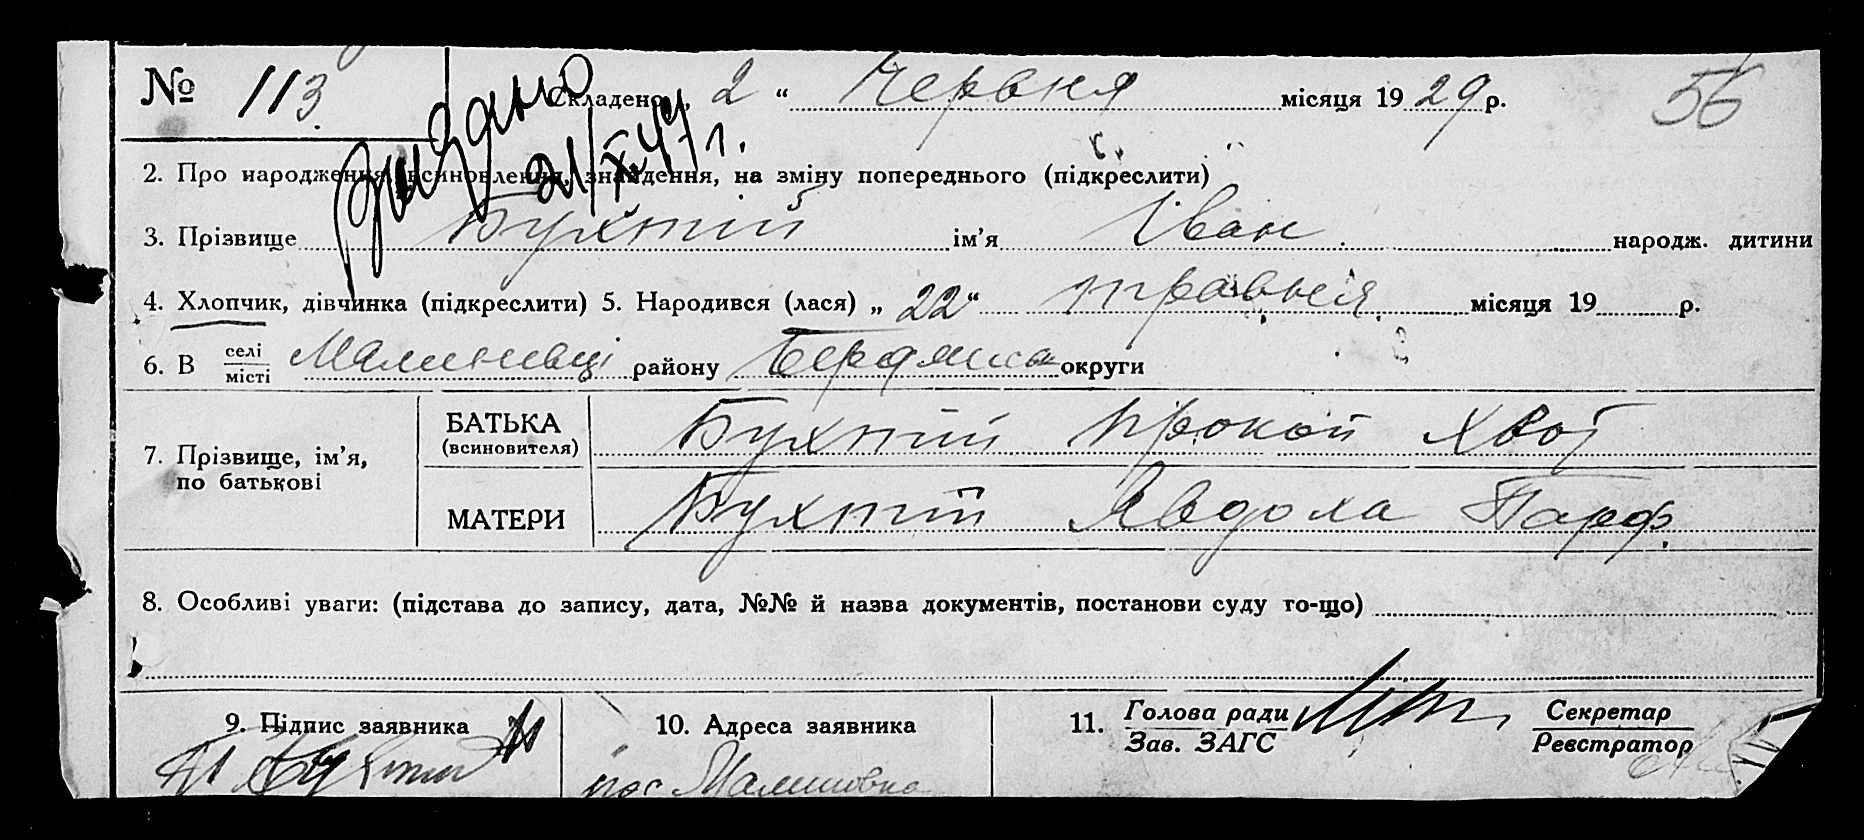 № 113. Складено „ 2 “ Червня місяця 1929 р. 56
21/X.47 г.
2. Про народження, всиновлення, знайдення, на зміну попереднього (підкреслити)
3. Прізвище Бухтій ім’я Іван народж. дитини
4. Хлопчик, дівчинка (підкреслити) 5. Народився (лася) „ 22 “ травня місяця 19 р.
6. В селі
місті району округи
7. Прізвище, ім’я,
по батькові
БАТЬКА
(всиновителя)
Бухтій Хвот
МАТЕРИ
Бухтій Явдоха Парф.
8. Особливі уваги: (підстава до запису, дата, №№ й назва документів, постанови суду то-що)
9. Підпис заявника
10. Адреса заявника
Малинівка
11. Голова ради
Зав. ЗАГС
Секретар
Реєстратор